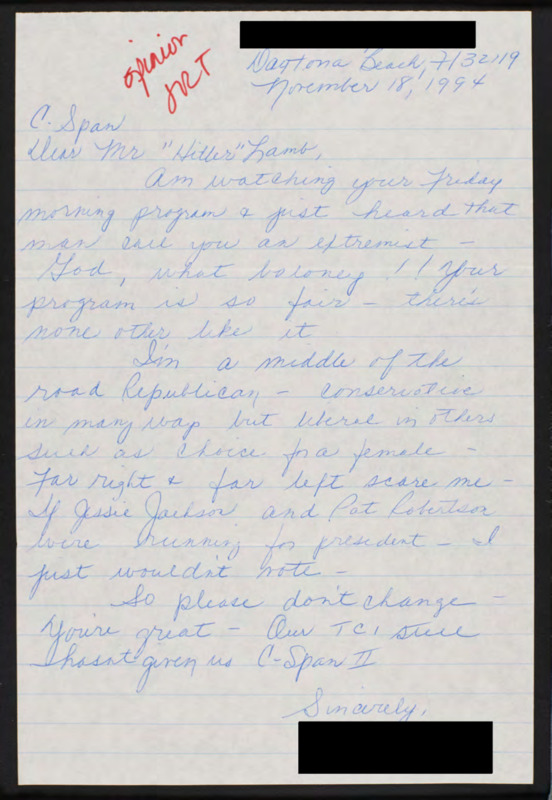 opinion
JRT
Daytona Beach, Fl 32119
November 18, 1994
C. Span
Dear Mr "Hitler" Lamb,
Am watching your Friday
morning program & just heard that
man call you an extremist -
God, what baloney!! Your
program is so fair - there's
none other like it
I'm a middle of the
road Republican - conservative
in many ways but liberal in others
such as choice for a female -
Far right & far left scare me -
If Jessie Jackson and Pat Robertson
were running for president - I
just wouldn't vote -
So please don't change -
You're great - Our TCI still
hasn't given us C-Span II
Sincerely,